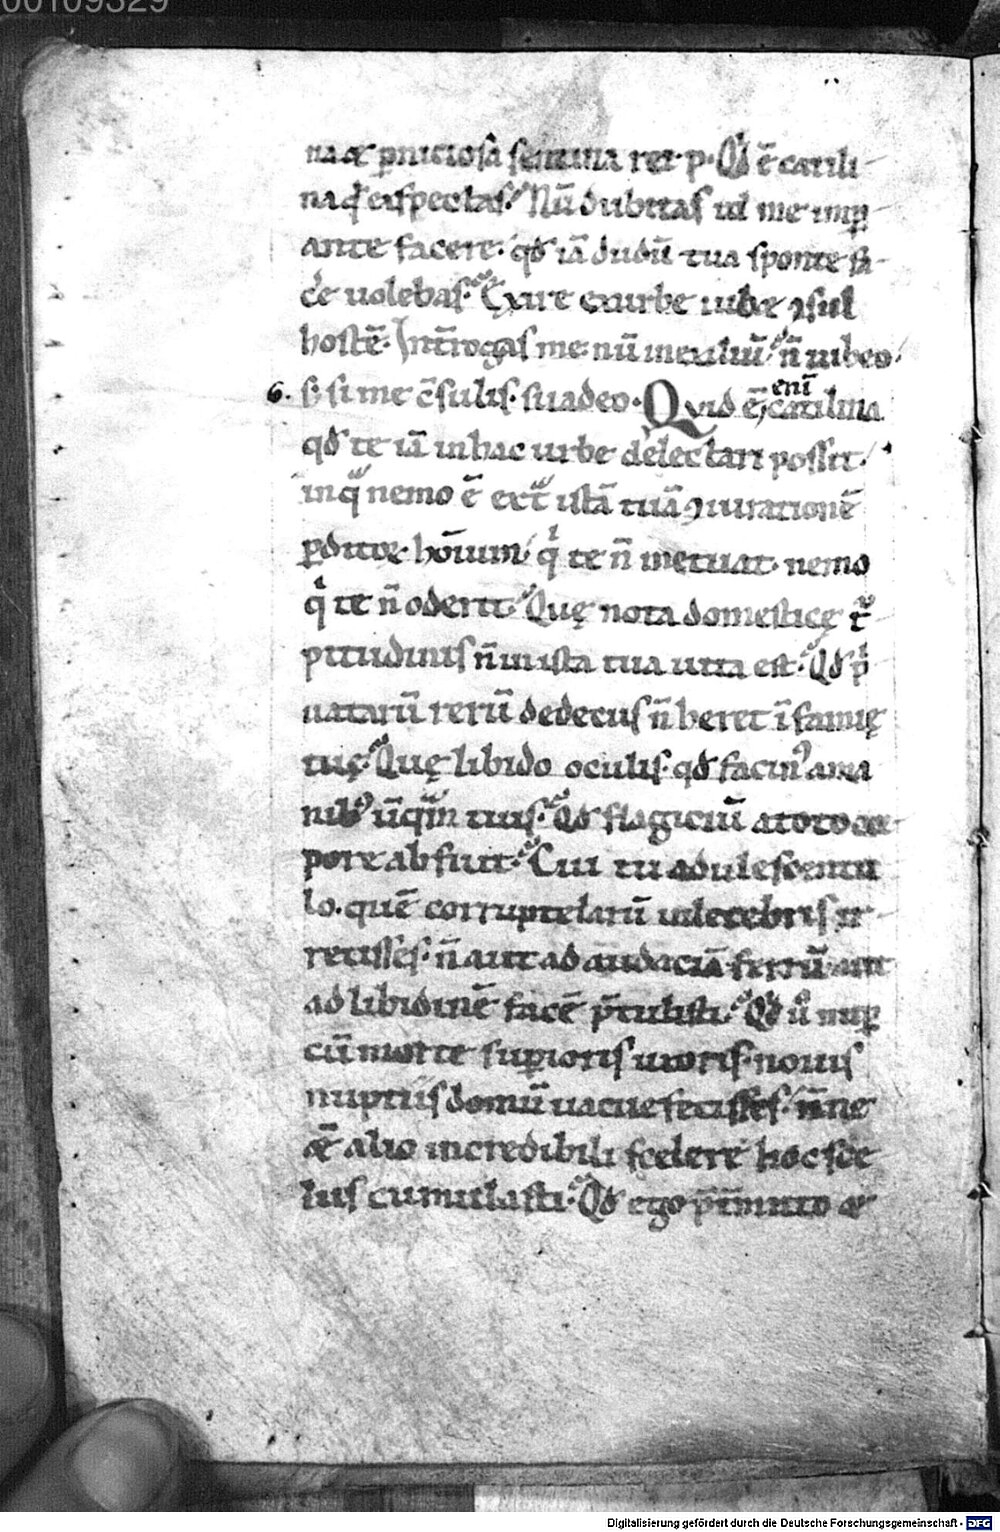 00109329
na et ꝑniciosa sentina rei·p· Qd̓ ē catili
na qd̓ exspectas. Nū dubitas id me imꝑ
ante facere· qd̓ iā dudū tua sponte fa
cē uolebas. Exire ex urbe iubet ꝯsul
hostē· Int̄rogas me· nū in exiliū. n̄ iubeo·
6. s; si me c̄sulis· suadeo· Qvid ē eni᷈ catilina
qd̓ te iā in hac urbe delectari possit.
in qͣ nemo ē ext᷈ istā tuā ꝯiurationē
ꝑditoꝝ hōium qͥ te n̄ metuat· nemo
qͥ te n̄ oderit. Quę nota domesticę t᷈
pitudinis n̄ inusta tua uita est. Qd̓ pͥ
uatarū rerū dedecus n̄ heret ī famię
tuę. Quę libido oculis· qd̓ facin᷒ a ma
nib᷒ ūqͣm tuis. Qd̓ flagiciū a toto cor
pore abfuit. Cui tu adulescentu
lo· quē corruptelarū inlecebris ir
retisses· n̄ aut ad audaciā ferrū aut
ad libidinē facē p̄tulisti. Qd̓ u̓ nuꝑ
cū morte suꝑioris uxoris· nouis
nuptiis domū uacuefecisses· n̄ne
etiā alio incredibili scelere hoc sce
lus cumulasti. Qd̓ ego p̄t̄mitto et
Digitalisierung gefördert durch die Deutsche Forschungsgemeinschaft - DFG